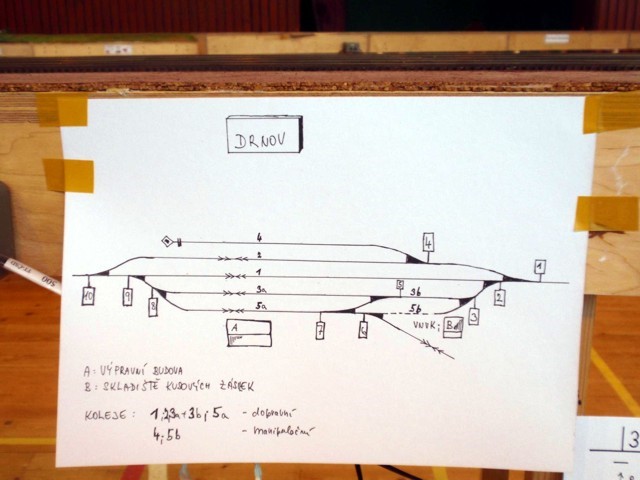 DRNOV
4
2
4
1
1
3a
5
3b
2
10
9
8
5a
5b
3
A
7
6
VNVK;
B
A: VÝPRAVNÍ BUDOVA
B: SKLADIŠTĚ KUSOVÝCH ZÁSILEK
KOLEJE: 1,2,3a+3b; 5a - dopravní
4; 5b - manipulační
13